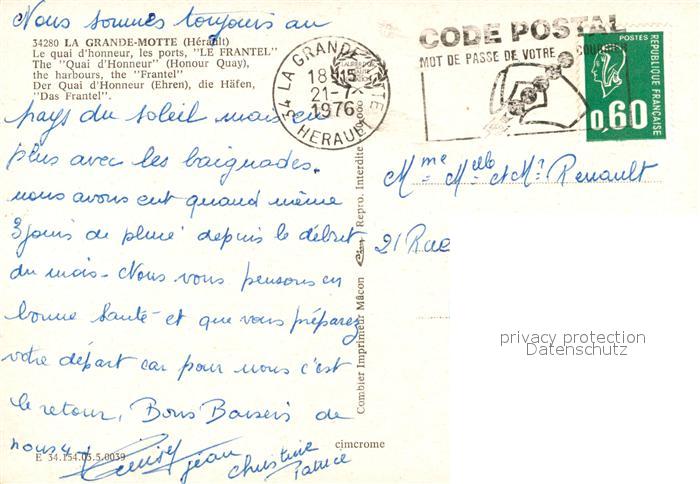 Nous sommes toujours au
34280 LA GRANDE-MOTTE (Hérault)
Le quai d'honneur, les ports, "LE FRANTEL"
The "Quai d'Honneur" (Honour Quay),
the harbours, the "Frantel"
Der Quai d'Honneur (Ehren), die Häfen,
"Das Frantel".
pays du soleil mais en
plus avec les baignades.
nous avons eut quand même
3 jours de pluie depuis le début
du mois - Nous vous pensons en
bonne santé et que vous préparez
votre départ car pour nous c'est
le retour, Bons Baisers de
nous 4
Jean Christine
Patrice
E 34.154.05.5.0039
cimcrome
Combier Imprimeur Mâcon Cim Repro. Interdite
34 LA GRANDE MOTTE
18H15
21-7
1976
HERAULT
CODE POSTAL
MOT DE PASSE DE VOTRE COURRIER
REPUBLIQUE FRANÇAISE
POSTES
0,60
Mme Melle et Mr Renault
21 Rue
privacy protection
Datenschutz